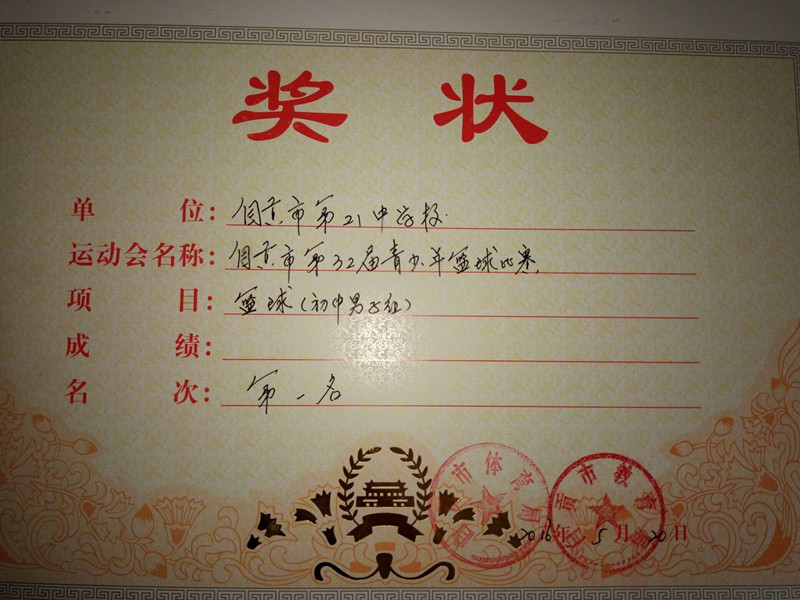 奖状
单位：自贡市第21中学校
运动会名称：自贡市第32届青少年篮球比赛
项目：篮球（初中男子组）
成绩：
名次：第一名
市体育局
贡市教育局
2016年5月20日